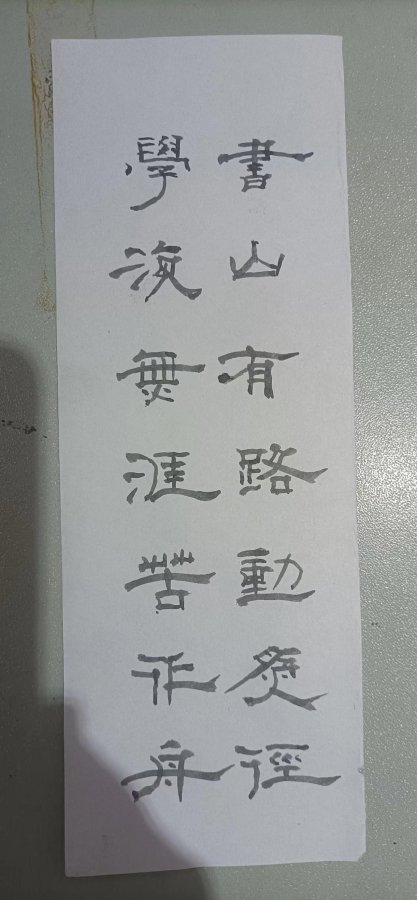 書山有路動為徑
學海無涯苦作舟